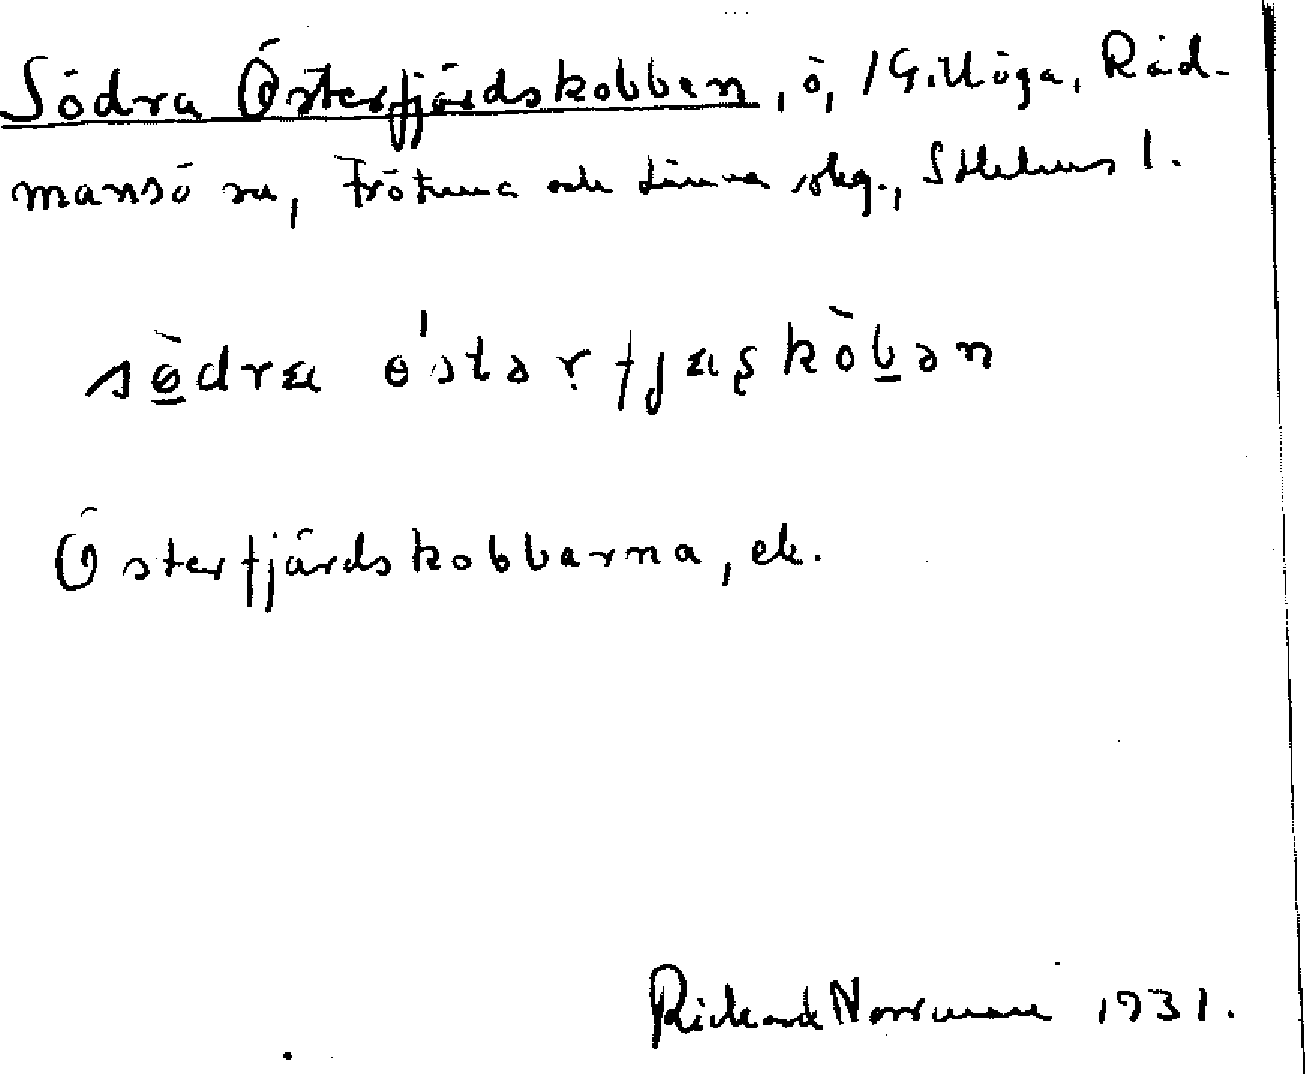 Södra Österfjärdskobben, ö, /Gillöga, Råd-
mansö sn, Frötuna och Länna skg., Sthlms l.
södra östərfjaşkòbən
Österfjärdskobbarna, ek.
Rickard Norrman 1931.